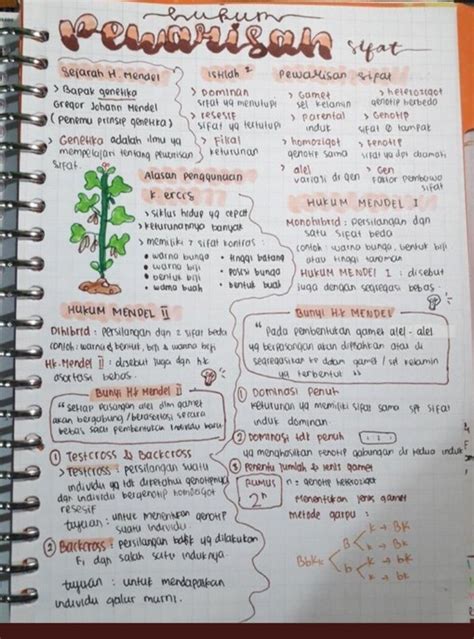 hukum
Pewarisan sifat
Sejarah H. Mendel
> Bapak genetika
Gregor Johann Mendel
( penemu prinsip genetika )
> Genetika adalah ilmu yg
mempelajari tentang pewarisan
sifat.
Istilah² Pewarisan sifat
> Dominan
sifat yg menutupi
> resesif
sifat yg tertutupi
> Filial
keturunan
> Gamet
sel kelamin
> parental
induk
> homozigot
genotip sama
> alel
variasi dr gen
> heterozigot
genotip berbeda
> Genotip
sifat tampak
> Fenotip
sifat yg dpt diamati
> Gen
faktor pembawa
sifat
Alasan penggunaan
k. ercis
> siklus hidup yg cepat
> keturunannya banyak
> memiliki 7 sifat kontras :
• warna bunga
• warna biji
• bentuk biji
• warna buah
• tinggi batang
• posisi bunga
• bentuk buah
HUKUM MENDEL I
Monohibrid : persilangan dgn
satu sifat beda
contoh : warna bunga, bentuk biji
atau tinggi tanaman
HUKUM MENDEL I : disebut
juga dengan segregasi bebas
Bunyi Hk MENDEL
" Pada pembentukan gamet alel - alel
yg berpasangan akan dipisahkan atau di
segregasikan ke dalam gamet / sel kelamin
yg terbentuk "
HUKUM MENDEL II
Dihibrid : persilangan dgn 2 sifat beda
contoh : warna & bentuk biji & warna biji
Hk. Mendel II : disebut juga dgn hk
asortasi bebas.
Bunyi Hk Mendel II
" setiap pasangan alel dlm gamet
akan bergabung / berasortasi secara
bebas saat pembentukan individu baru
① Testcross & Backcross
> Testcross : persilangan suatu
individu yg tdt diketahui genotipnya
dgn individu bergenotip homozigot
resesif
tujuan : untuk menentukan genotip
suatu individu.
② Backcross : persilangan balik yg dilakukan
F₁ dgn salah satu induknya.
tujuan : untuk mendapatkan
individu galur murni.
① Dominasi penuh
keturunan yg memiliki sifat sama spt sifat
induk dominan.
② Dominasi tdk penuh
yg menghasilkan fenotip gabungan dr kedua induk
③ Penentu jumlah & jenis gamet
RUMUS
2ⁿ
n : genotip heterozigot
Menentukan jenis gamet
metode garpu :
BbKk
B
k → BK
k → Bk
b
k → bK
k → bk